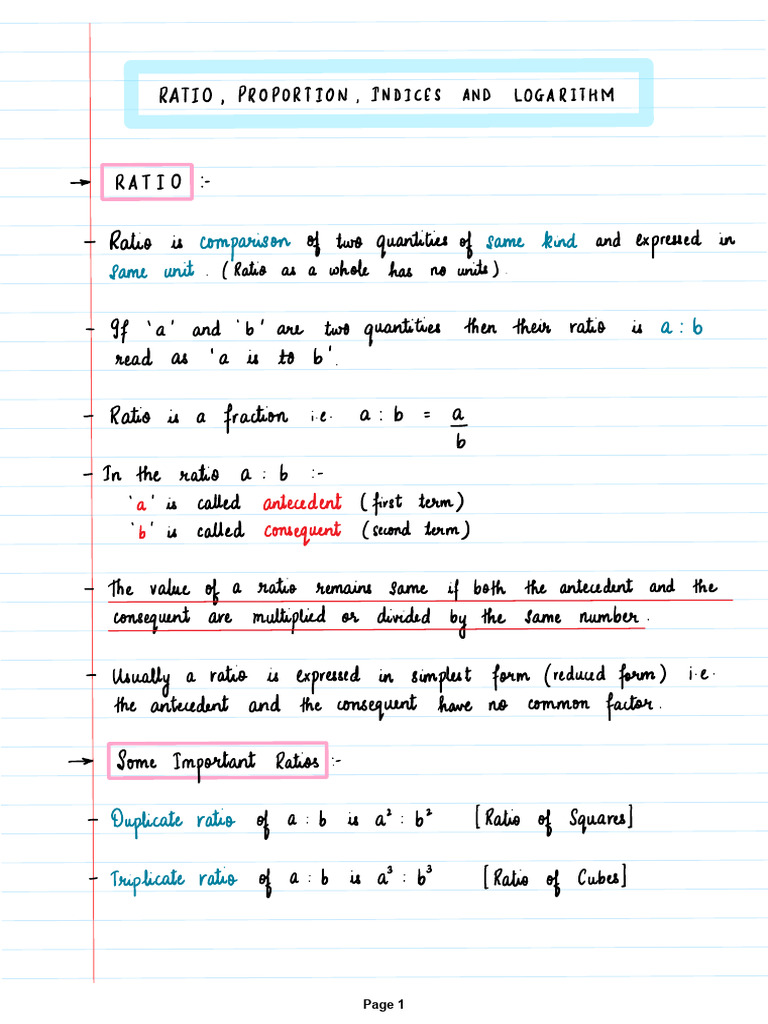 RATIO, PROPORTION, INDICES AND LOGARITHM
→ RATIO :-
- Ratio is comparison of two quantities of same kind and expressed in
same unit. (Ratio as a whole has no units).
- If 'a' and 'b' are two quantities then their ratio is a : b
read as 'a is to b'.
- Ratio is a fraction i.e. a : b = a/b
- In the ratio a : b :-
'a' is called antecedent (first term)
'b' is called consequent (second term)
- The value of a ratio remains same if both the antecedent and the
consequent are multiplied or divided by the same number.
- Usually a ratio is expressed in simplest form (reduced form) i.e.
the antecedent and the consequent have no common factor.
→ Some Important Ratios :-
- Duplicate ratio of a : b is a² : b² [Ratio of Squares]
- Triplicate ratio of a : b is a³ : b³ [Ratio of Cubes]
Page 1